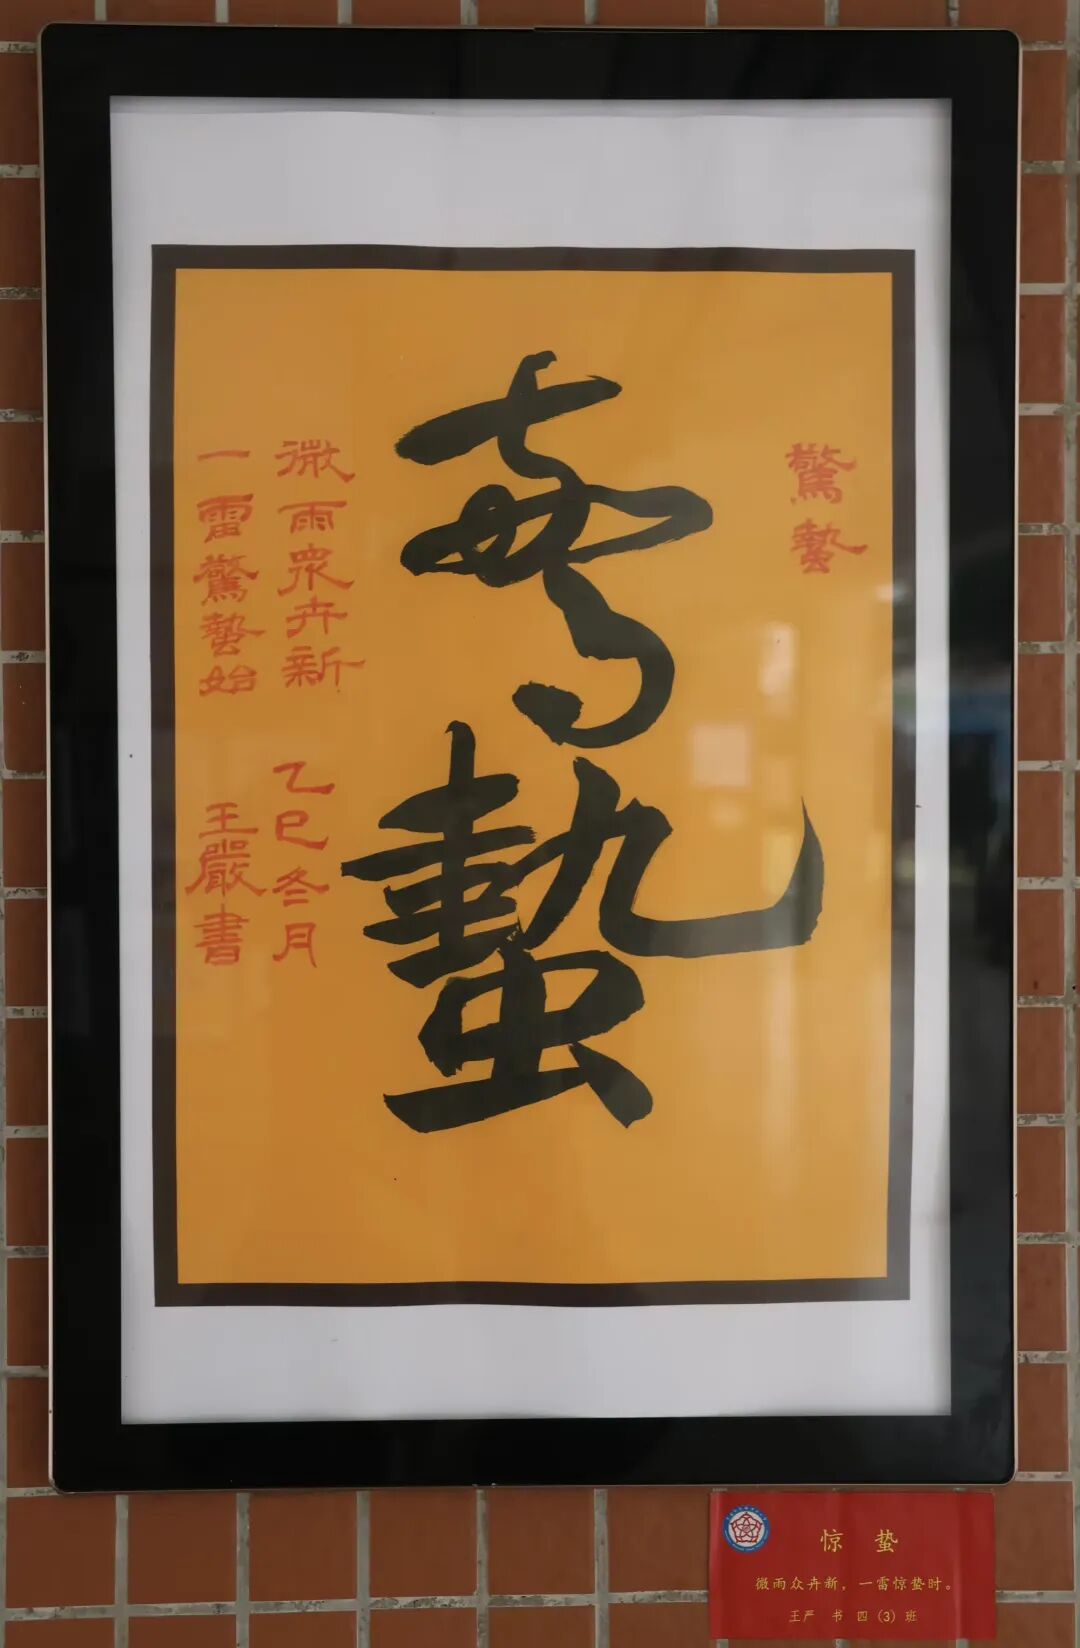 驚蟄
驚蟄
微雨眾卉新 乙巳冬月
一雷驚蟄始 王嚴書
惊 蛰
微雨众卉新，一雷惊垫时。
王严 书 四（3）班